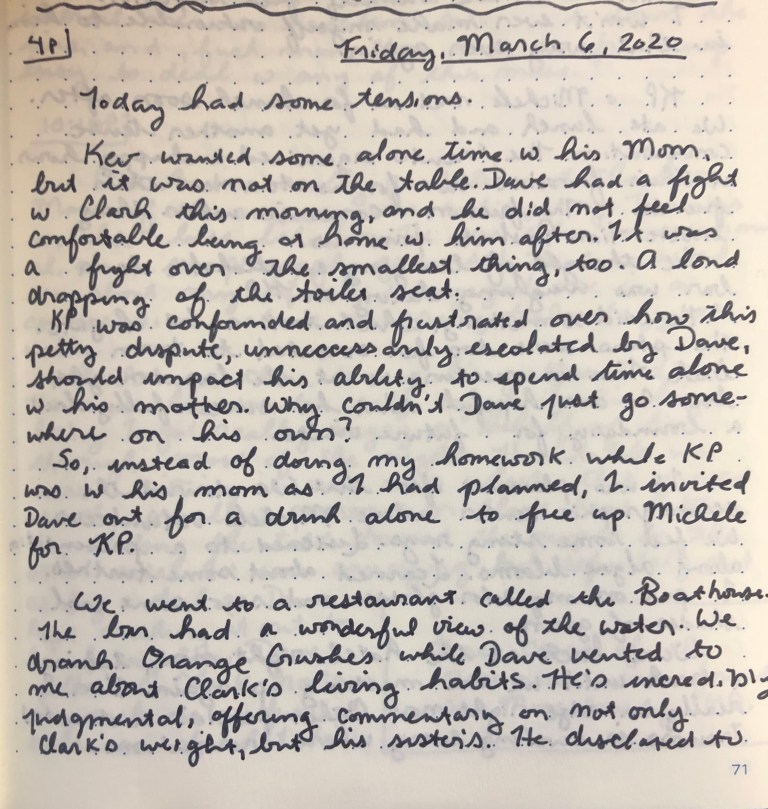 4P Friday, March 6, 2020
Today had some tensions.
Kev wanted some alone time w his Mom,
but it was not on the table. Dave had a fight
w Clark this morning, and he did not feel
comfortable being at home w him after. It was
a fight over the smallest thing, too. A loud
dropping of the toilet seat.
KP was confounded and frustrated over how this
petty dispute, unneccessarily escalated by Dave,
should impact his ability to spend time alone
w his mother. Why couldn't Dave just go some-
where on his own?
So, instead of doing my homework while KP
was w his mom as I had planned, I invited
Dave out for a drink alone to free up Michele
for KP.
We went to a restaurant called the Boathouse.
The bar had a wonderful view of the water. We
drank Orange Crushes while Dave vented to
me about Clark's living habits. He's incredibly
judgmental, offering commentary on not only
Clark's weight, but his sister's. He disclosed to
71